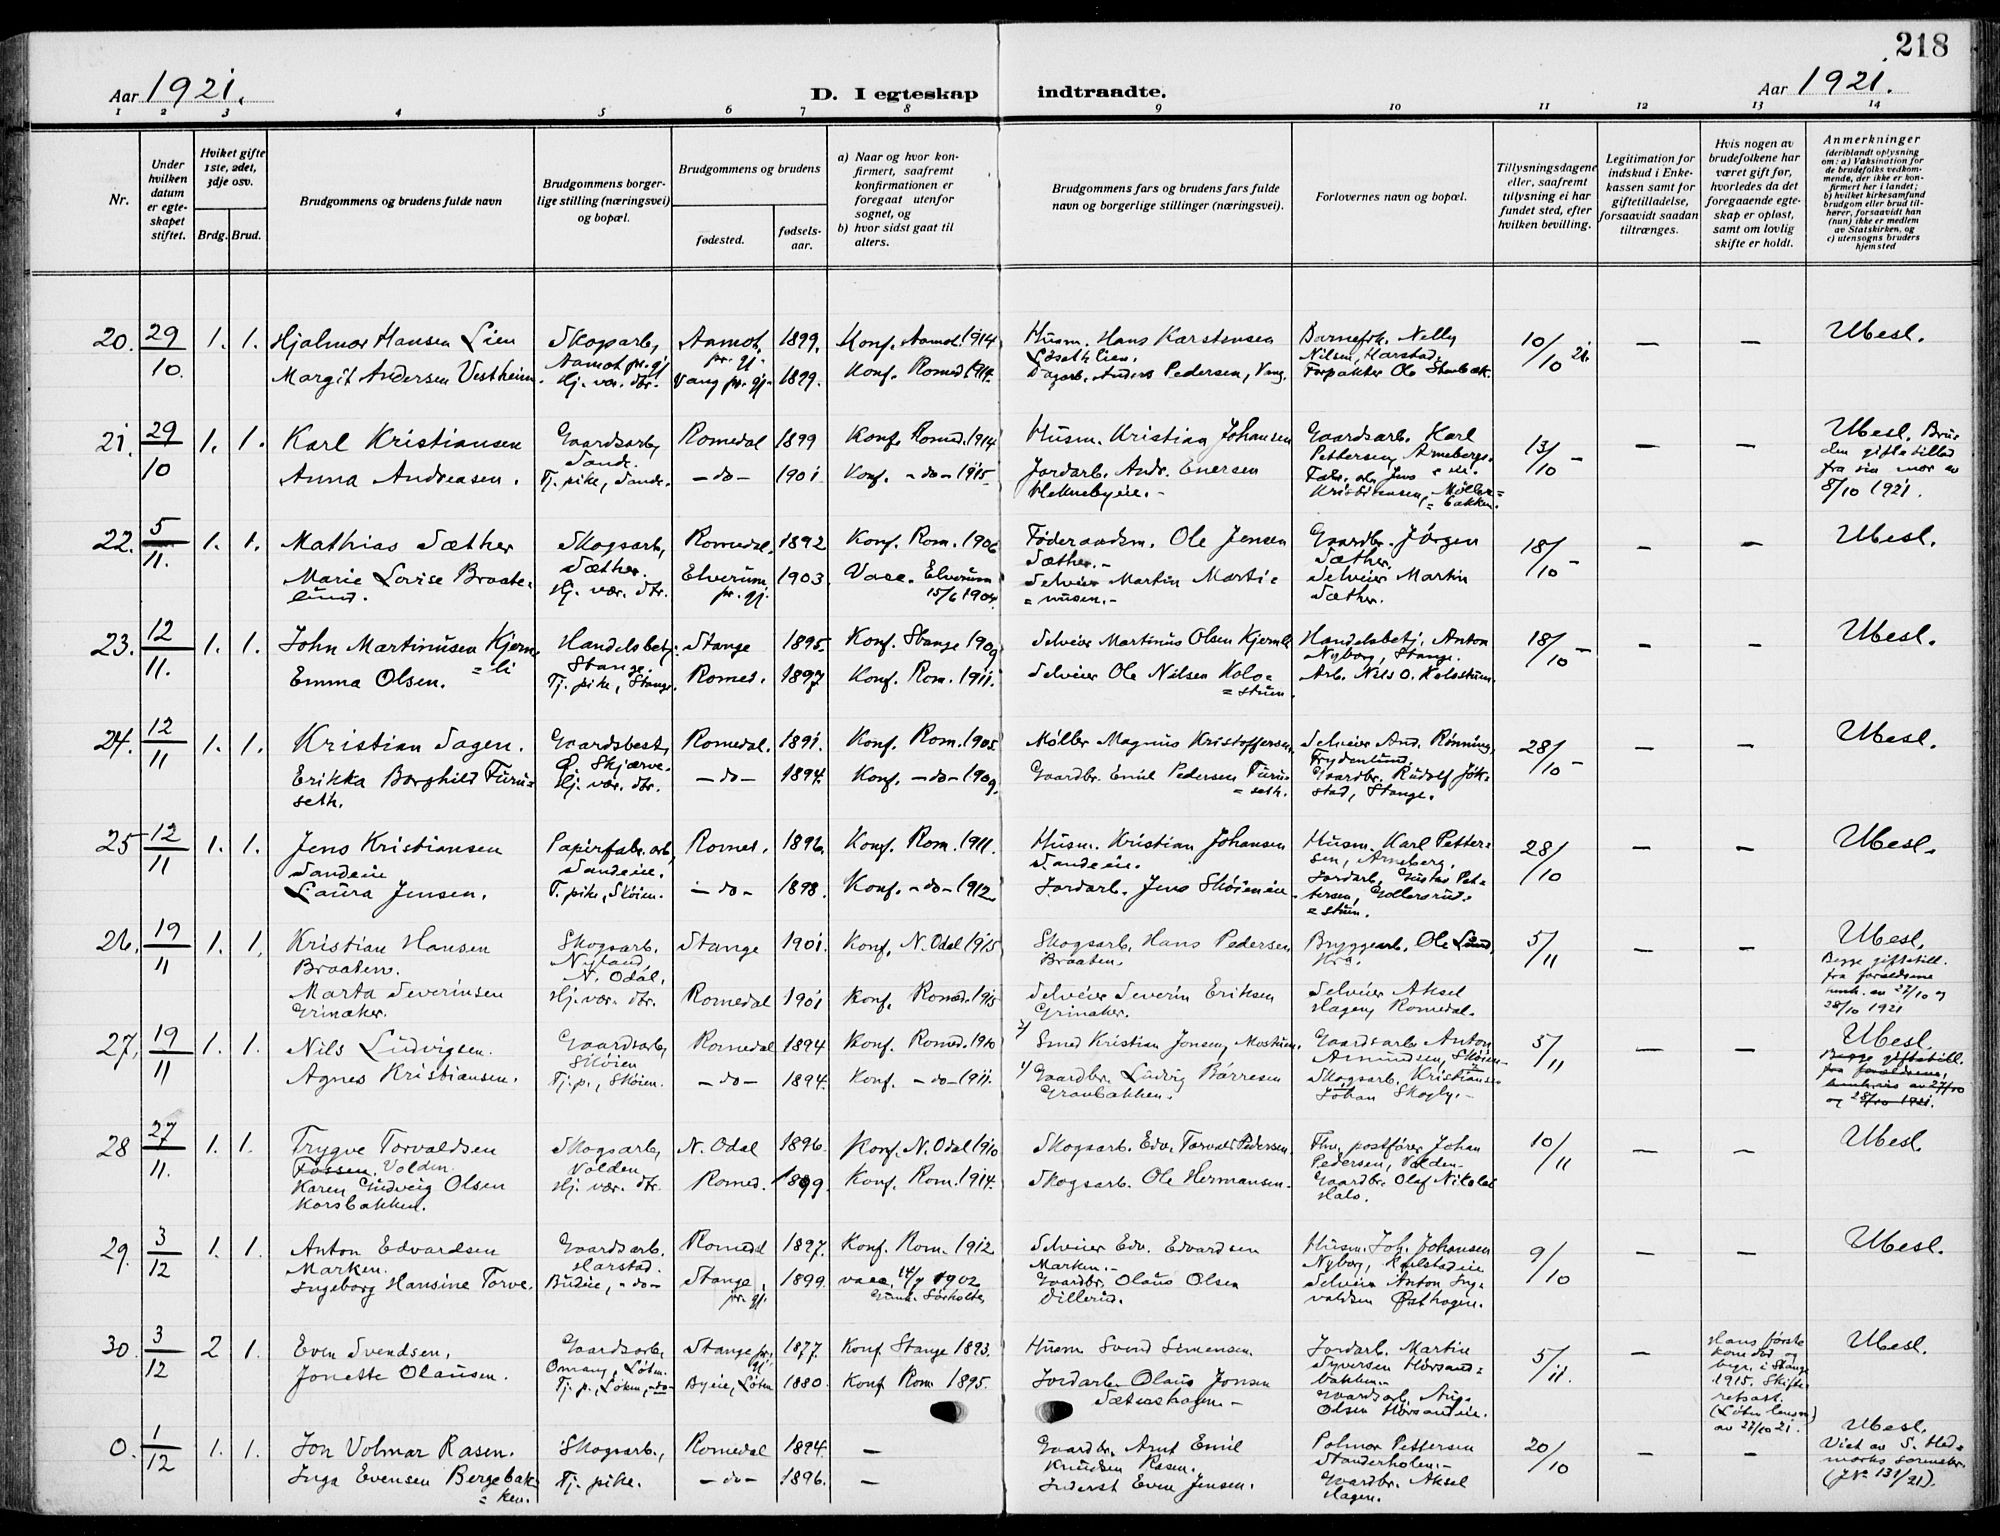 218
Aar 1921.
D. I egteskap indtraadte.
Aar 1921.
1 2 3 4 5 6 7 8 9 10 11 12 13 14
Nr.
Under hvilken datum er egteskapet stiftet.
Hviket gifte 1ste, 2det, 3dje osv.
Brdg. Brud.
Brudgommens og brudens fulde navn
Brudgommens borgerlige stilling (næringsvei) og bopæl.
Brudgommens og brudens
fødested.
fødselsaar.
a) Naar og hvor konfirmert, saafremt konfirmationen er foregaat utenfor sognet, og
b) hvor sidst gaat til alters.
Brudgommens fars og brudens fars fulde navn og borgerlige stillinger (næringsvei).
Forlovernes navn og bopæl.
Tillysningsdagene eller, saafremt tillysning ei har fundet sted, efter hvilken bevilling.
Legitimation for indskud i Enkekassen samt for giftetilladelse, forsaavidt saadan tiltrænges.
Hvis nogen av brudefolkene har været gift før, hvorledes da det foregaaende egteskap er opløst, samt om lovlig skifte er holdt.
Anmerkninger
(deriblandt oplysning om: a) Vaksination for de brudefolks vedkommende, der ikke er konfirmert her i landet; b) hvilket kirkesamfund brudgom eller brud tilhører, forsaavidt han (hun) ikke er medlem av Statskirken, og c) utensogns bruders hjemsted
20. 29/10. 1. 1. Hjalmar Hansen Lien Skogarb, Aamot pr. gj. Aamot, pr. gj. 1899. Konf. Aamot. 1914 Husm. Hans Karstensen Løsethlien. Barnefrk. Nelly Nilsen, Harstad. 10/10 21. — — Ubesl.
Margit Andersen Vestheim. Hj. vær. dtr. Vang pr. gj. 1899. Konf. Romed. 1914. Dagarb. Anders Pedersen, Vang. Forpakter Ole Stenbæk.
21. 29/10 1. 1. Karl Kristiansen Gaardsarb, Sande. Romedal 1899 Konf. Romed. 1914 Husm. Kristian Johansen Gaardsarb. Karl Pettersen, Arneberg. 13/10 - — — Ubesl. Bruden giftetillad fra sin mor av 8/10 1921.
Anna Andreasen. Tj. pike, Sande. -do- 1901. Konf. -do- 1915. Jordarb. Andr. Enersen Heknebyeie.- Fabr. arb. Jens Kristiansen, Møllerbakken.
22. 5/11. 1. 1. Mathias Sæther Skogsarb, Sæther. Romedal. 1892 Konf. Rom. 1906 Føderaadsm. Ole Jensen Sæther.- Gaardbr. Jørgen Sæther. 18/10 - — — Ubesl.
Marie Lovise Braatelund. Hj. vær. dtr. Elverum pr. gj. 1903. Vacc. Elverum 15/6 1904. Selveier Martin Martinusen.- Selveier Martin Sæther.
23. 12/11. 1. 1. John Martinusen Kjernli Handelsbetj. Stange. Stange 1895. Konf. Stange 1909 Selveier Martinus Olsen Kjernli Handelsbetj. Anton Nyborg, Stange. 18/10 - — — Ubesl.
Emma Olsen. Tj. pike, Stange. Romed. 1897 Konf. Rom. 1911. Selveier Ole Nilsen Kolostuen. Arb. Nils O. Kolostuen.
24. 12/11 1. 1. Kristian Sagen. Gaardsbest, Ø. Skjærve. Romedal. 1891. Konf. Rom. 1905. Møller Magnus Kristoffersen. Selveier And. Rönning, Frydenlund. 28/10 - — — Ubesl.
Erikka Borghild Furuseth. Hj. vær. dtr. -do- 1894. Konf. -do- 1909. Gaardbr. Emil Pedersen Furuseth. Gaardbr. Rudolf Jøkstad, Stange.
25 12/11 1. 1. Jens Kristiansen Sandeie Papirfabr. arb, Sandeeie. Romed. 1896. Konf. Rom. 1911. Husm. Kristian Johansen Sandeeie. Husm. Karl Pettersen, Arneberg. 28/10 — — Ubesl.
Laura Jensen. T. pike, Skøien. -do- 1898. Konf. -do- 1912 Jordarb. Jens Skøieneie Jordarb. Gustav Pettersen, Gollersrudstuen.
26. 19/11 1. 1. Kristian Hansen Braaten. Skogsarb. Nyland, N. Odal. Stange 1901. Konf. N. Odal 1915 Skogsarb. Hans Pedersen Braaten. Bryggearb. Ole Lund, Kra. 5/11 — — Ubesl. Begge giftetill. fra forældrene henh. av 27/10 og 28/10 1921
Marta Severinsen Grinaker. Hj. vær. dtr. Romedal 1901 Konf. Romed. 1915 Selveier Severin Eriksen Grinaker. Selveier Aksel Hagen, Romedal.
27. 19/11 1. 1. Nils Ludvigsen. Gaardsarb, Skøien Romedal 1894 Konf. Romed. 1910 2/ Smed Kristian Jonsen, Mostuen. Gaardsarb. Anton Amundsen, Skøien. 5/11 — — Ubesl. Begge giftetill. fra forældrene, henh. av 27/10 og 28/10 1921.
Agnes Kristiansen. Tj. p., Skøien. -do- 1894. Konf. -do- 1911. 1/ Gaardbr. Ludvig Børresen Granbakken. Skogsarb. Kristian Johan Skogly.-
28 27/11. 1. 1. Trygve Torvaldsen Fossen. Volden. Skogsarb, Volden. N. Odal 1896. Konf. N. Odal 1910 Skogsarb. Edv. Torvald Pedersen. Fhv. postfører Johan Pedersen, Volden. 10/11 — — Ubesl.
Karen Gudveig Olsen Korsbakken. Hj. vær. dtr. Romed. 1899. Konf. Rom. 1914. Skogsarb. Ole Hermansen. Gaardbr. Olaf Nikolai Hals.
29. 3/12 1. 1. Anton Edvardsen Marken. Gaardsarb. Harstad. Romedal 1897. Konf. Rom. 1912 Selveier Edv. Edvardsen Marken.- Husm. Joh. Johansen Nyborg, 9/10 — — Ubesl.
Ingeborg Hansine Torve. Budeie, -do- Stange, pr. gj. 1899. vacc. 14/9 1902 Gunh. Sørholte, Gaardbr. Olaus Olsen Dillerud. Selveier Anton Ingvaldsen Østhagen.
30. 3/12 2 1. Even Svendsen, Gaardsarb, Omang, Løten. Stange pr. gj. 1877. Konf Stange 1893. Husm Svend Simensen Jordarb. Martin Syversen Horsandbakken.- 5/11. — Hans første kone død og begr. i Stange 1915. Skifteretsatt. av 27/10 21. Ubesl.
Jonette Olausen. Tj. p., Løten, -do- Byeie, Løten 1880. Konf Rom. 1895. Jordarb Olaus Jonsen Sæterhagen - Gaardsarb. Aug. Olsen Horsandeie.
0. 1/12 1. 1. Jon Volmar Rasen. Skogsarb., Romedal 1894. — Gaardbr. Arnt Emil Knudsen Rasen. Polmor Pettersen Standerholen.- 20/10 — — Ubesl. Viet av S. Hedmarks sorenskr. (J. No 131/21).
Inga Evensen Bergebakken. Tj. pike. -do- 1896. — Inderst Even Jensen. Gaardbr. Aksel Hagen.